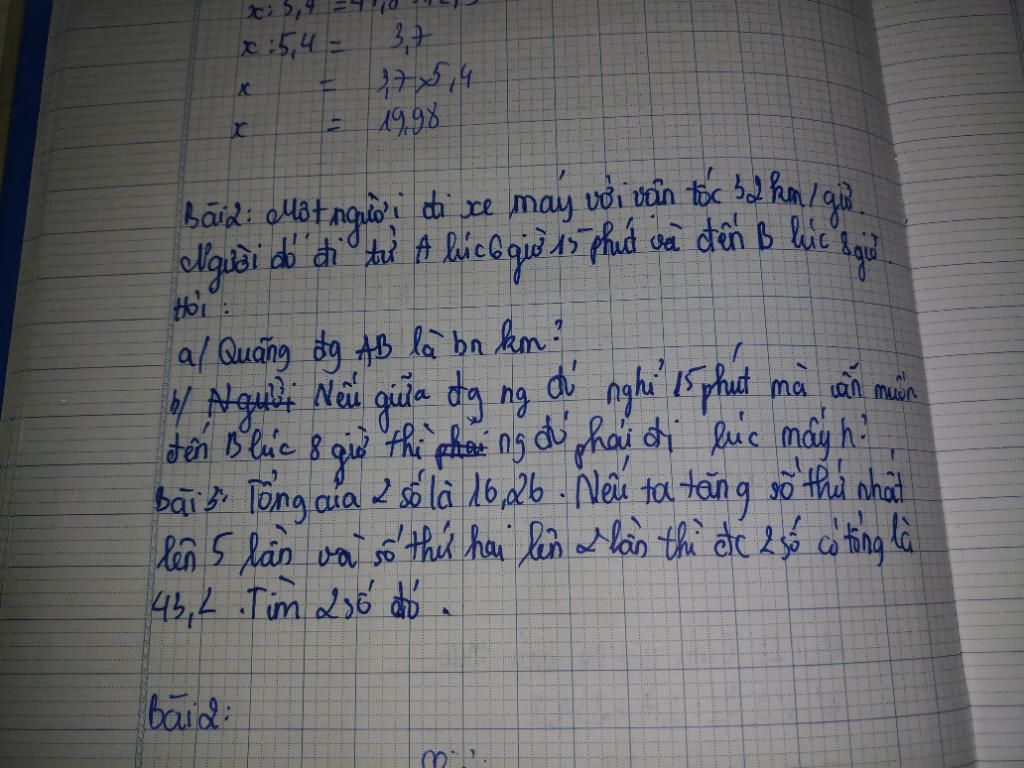 x : 5,4 =
x : 5,4 = 3,7
x = 3,7 x 5,4
x = 19,98
Bài 2: Một người đi xe máy với vân tốc 32 km / giờ.
Người đó đi từ A lúc 6 giờ 15 phút và đến B lúc 8 giờ.
Hỏi :
a/ Quãng đg AB là bn km?
b/ Người Nếu giữa đg ng đó nghỉ 15 phút mà vẫn muốn
đến B lúc 8 giờ thì phải ng đó phải đi lúc mấy h?
Bài 3: Tổng của 2 số là 16,26. Nếu ta tăng số thứ nhất
lên 5 lần và số thứ hai lên 2 lần thì đc 2 số có tổng là
43,2. Tìm 2 số đó.
Bài 2: